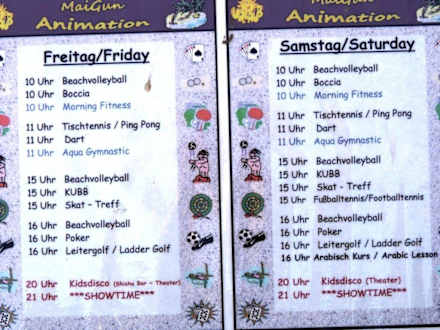 MaiGun
Animation
Freitag/Friday
10 Uhr Beachvolleyball
10 Uhr Boccia
10 Uhr Morning Fitness
11 Uhr Tischtennis / Ping Pong
11 Uhr Dart
11 Uhr Aqua Gymnastic
15 Uhr Beachvolleyball
15 Uhr KUBB
15 Uhr Skat - Treff
16 Uhr Beachvolleyball
16 Uhr Poker
16 Uhr Leitergolf / Ladder Golf
20 Uhr Kidsdisco (Shisha Bar - Theater)
21 Uhr ***SHOWTIME***
MaiGun
Animation
Samstag/Saturday
10 Uhr Beachvolleyball
10 Uhr Boccia
10 Uhr Morning Fitness
11 Uhr Tischtennis / Ping Pong
11 Uhr Dart
11 Uhr Aqua Gymnastic
15 Uhr Beachvolleyball
15 Uhr KUBB
15 Uhr Skat - Treff
15 Uhr Fußballtennis/Footballtennis
16 Uhr Beachvolleyball
16 Uhr Poker
16 Uhr Leitergolf / Ladder Golf
16 Uhr Arabisch Kurs / Arabic Lesson
20 Uhr Kidsdisco (Theater)
21 Uhr ***SHOWTIME***